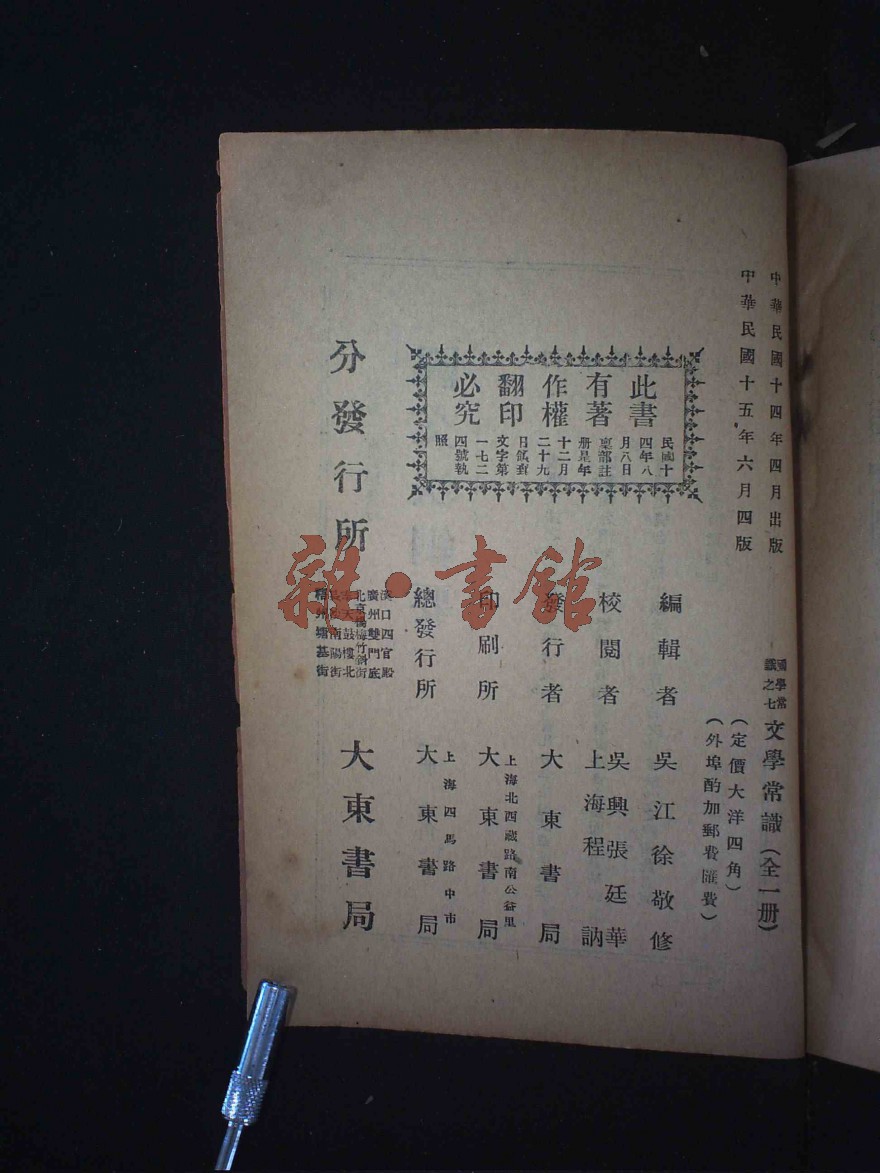 中華民國十四年四月出版
中華民國十五年六月四版
國學常
識之七
文學常識(全一册)
(定價大洋四角)
(外埠酌加郵費匯費)
此書
有著
作權
翻印
必究
民國十
四年八
月八日
稟部註
册是年
十二月
二十九
日領到
文字第
一七二
四號執
照
編輯者 吳江徐敬修
校閱者 吳興張廷華
上海程訥
發行者 大東書局
印刷所 上海北西藏路南公益里
大東書局
總發行所 上海四馬路中市
大東書局
分發行所
漢口四官殿
廣州雙門底
北京楊梅竹斜街
奉天鼓樓北
長沙南陽街
梧州塘基街
大東書局
雜·書館